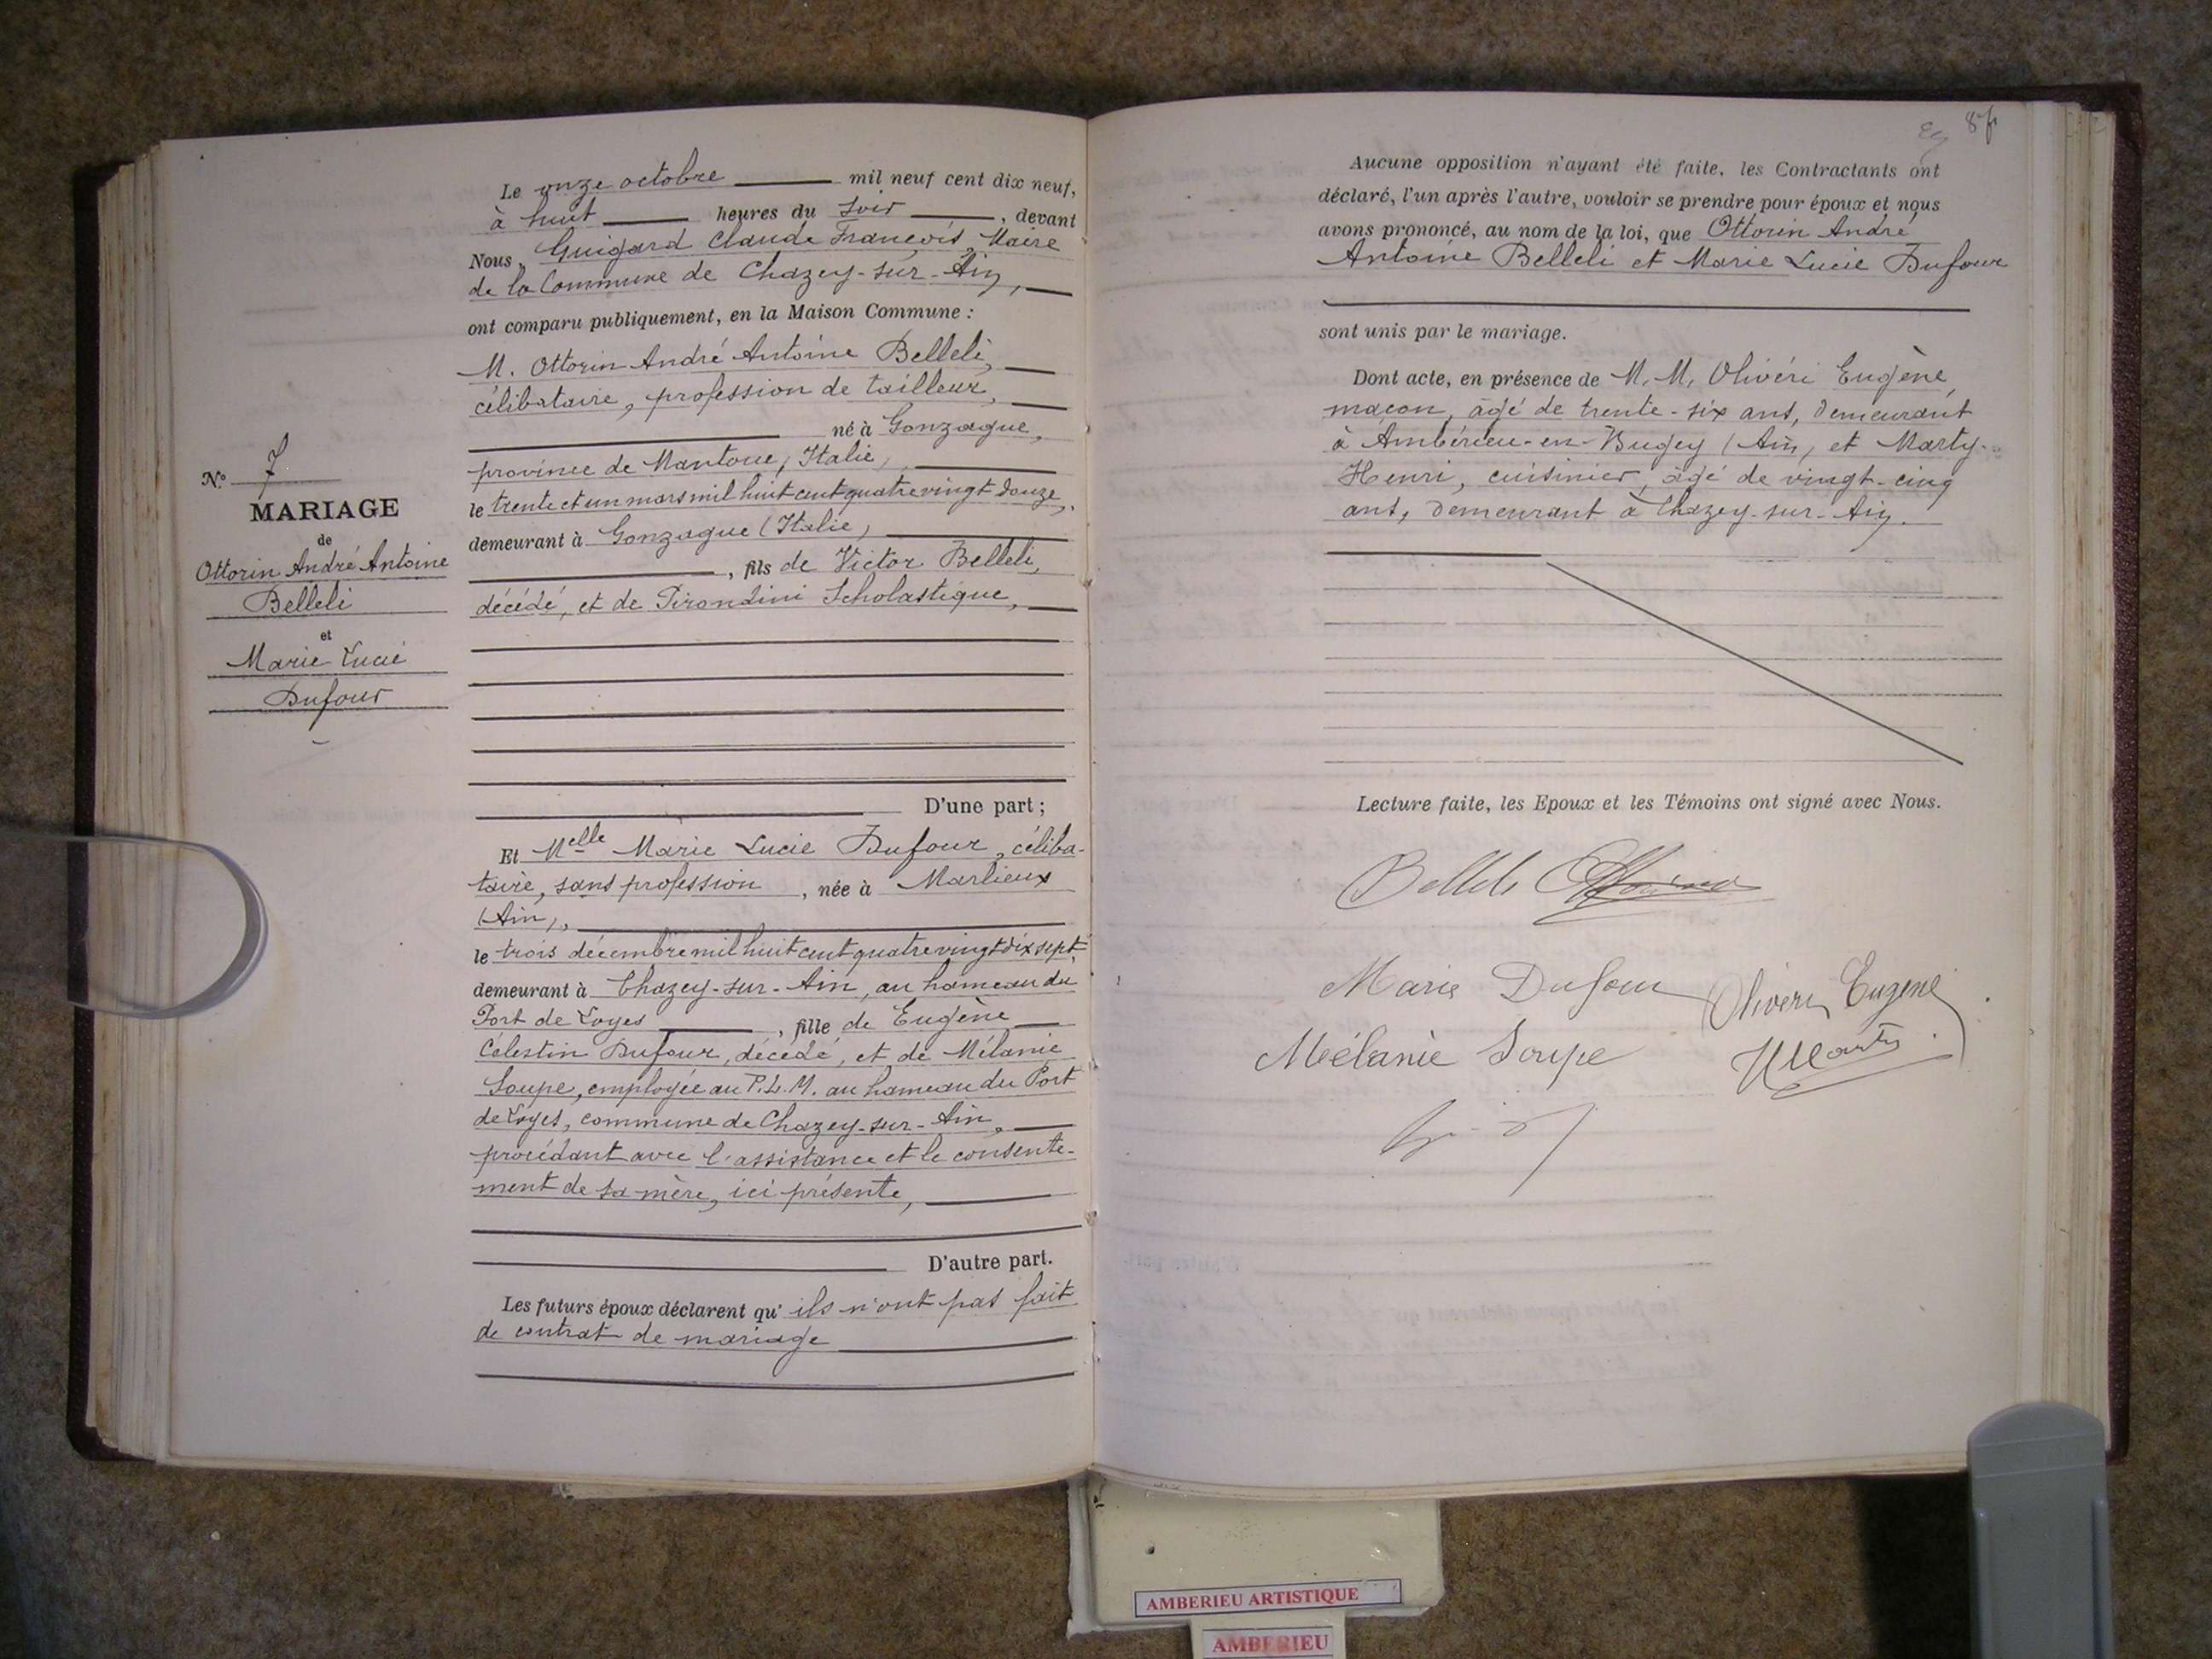 N° 7
MARIAGE
de
Ottorin André Antoine
Belleli
et
Marie Lucie
Dufour
Le onze octobre mil neuf cent dix neuf,
à huit heures du soir, devant
Nous, Guigard Claude François, Maire
de la Commune de Chazey-sur-Ain,
ont comparu publiquement, en la Maison Commune :
M. Ottorin André Antoine Belleli,
célibataire, profession de tailleur,
né à Gonzague,
province de Mantoue, Italie,
le trente et un mars mil huit cent quatre vingt douze,
demeurant à Gonzague (Italie)
, fils de Victor Belleli,
décédé, et de Pirondini Scholastique,
D'une part ;
Et Melle Marie Lucie Dufour, céliba-
taire, sans profession, née à Marlieux
(Ain),
le trois décembre mil huit cent quatre vingt dix sept,
demeurant à Chazey-sur-Ain, au hameau du
Port de Loyes, fille de Eugène
Célestin Dufour, décédé, et de Mélanie
Soupe, employée au P.L.M. au hameau du Port
de Loyes, commune de Chazey-sur-Ain,
procédant avec l'assistance et le consente-
ment de sa mère, ici présente,
D'autre part.
Les futurs époux déclarent qu'ils n'ont pas fait
de contrat de mariage
Aucune opposition n'ayant été faite, les Contractants ont
déclaré, l'un après l'autre, vouloir se prendre pour époux et nous
avons prononcé, au nom de la loi, que Ottorin André
Antoine Belleli et Marie Lucie Dufour
sont unis par le mariage.
Dont acte, en présence de M. M. Olivéri Eugène,
maçon, âgé de trente-six ans, demeurant
à Ambérieu-en-Bugey (Ain, et Marty
Henri, cuisinier, âgé de vingt-cinq
ans, demeurant à Chazey-sur-Ain.
Lecture faite, les Epoux et les Témoins ont signé avec Nous.
Belleli
Marie Dufour
Oliveri Eugene
Mélanie Soupe
HMarty
AMBERIEU ARTISTIQUE
AMBERIEU